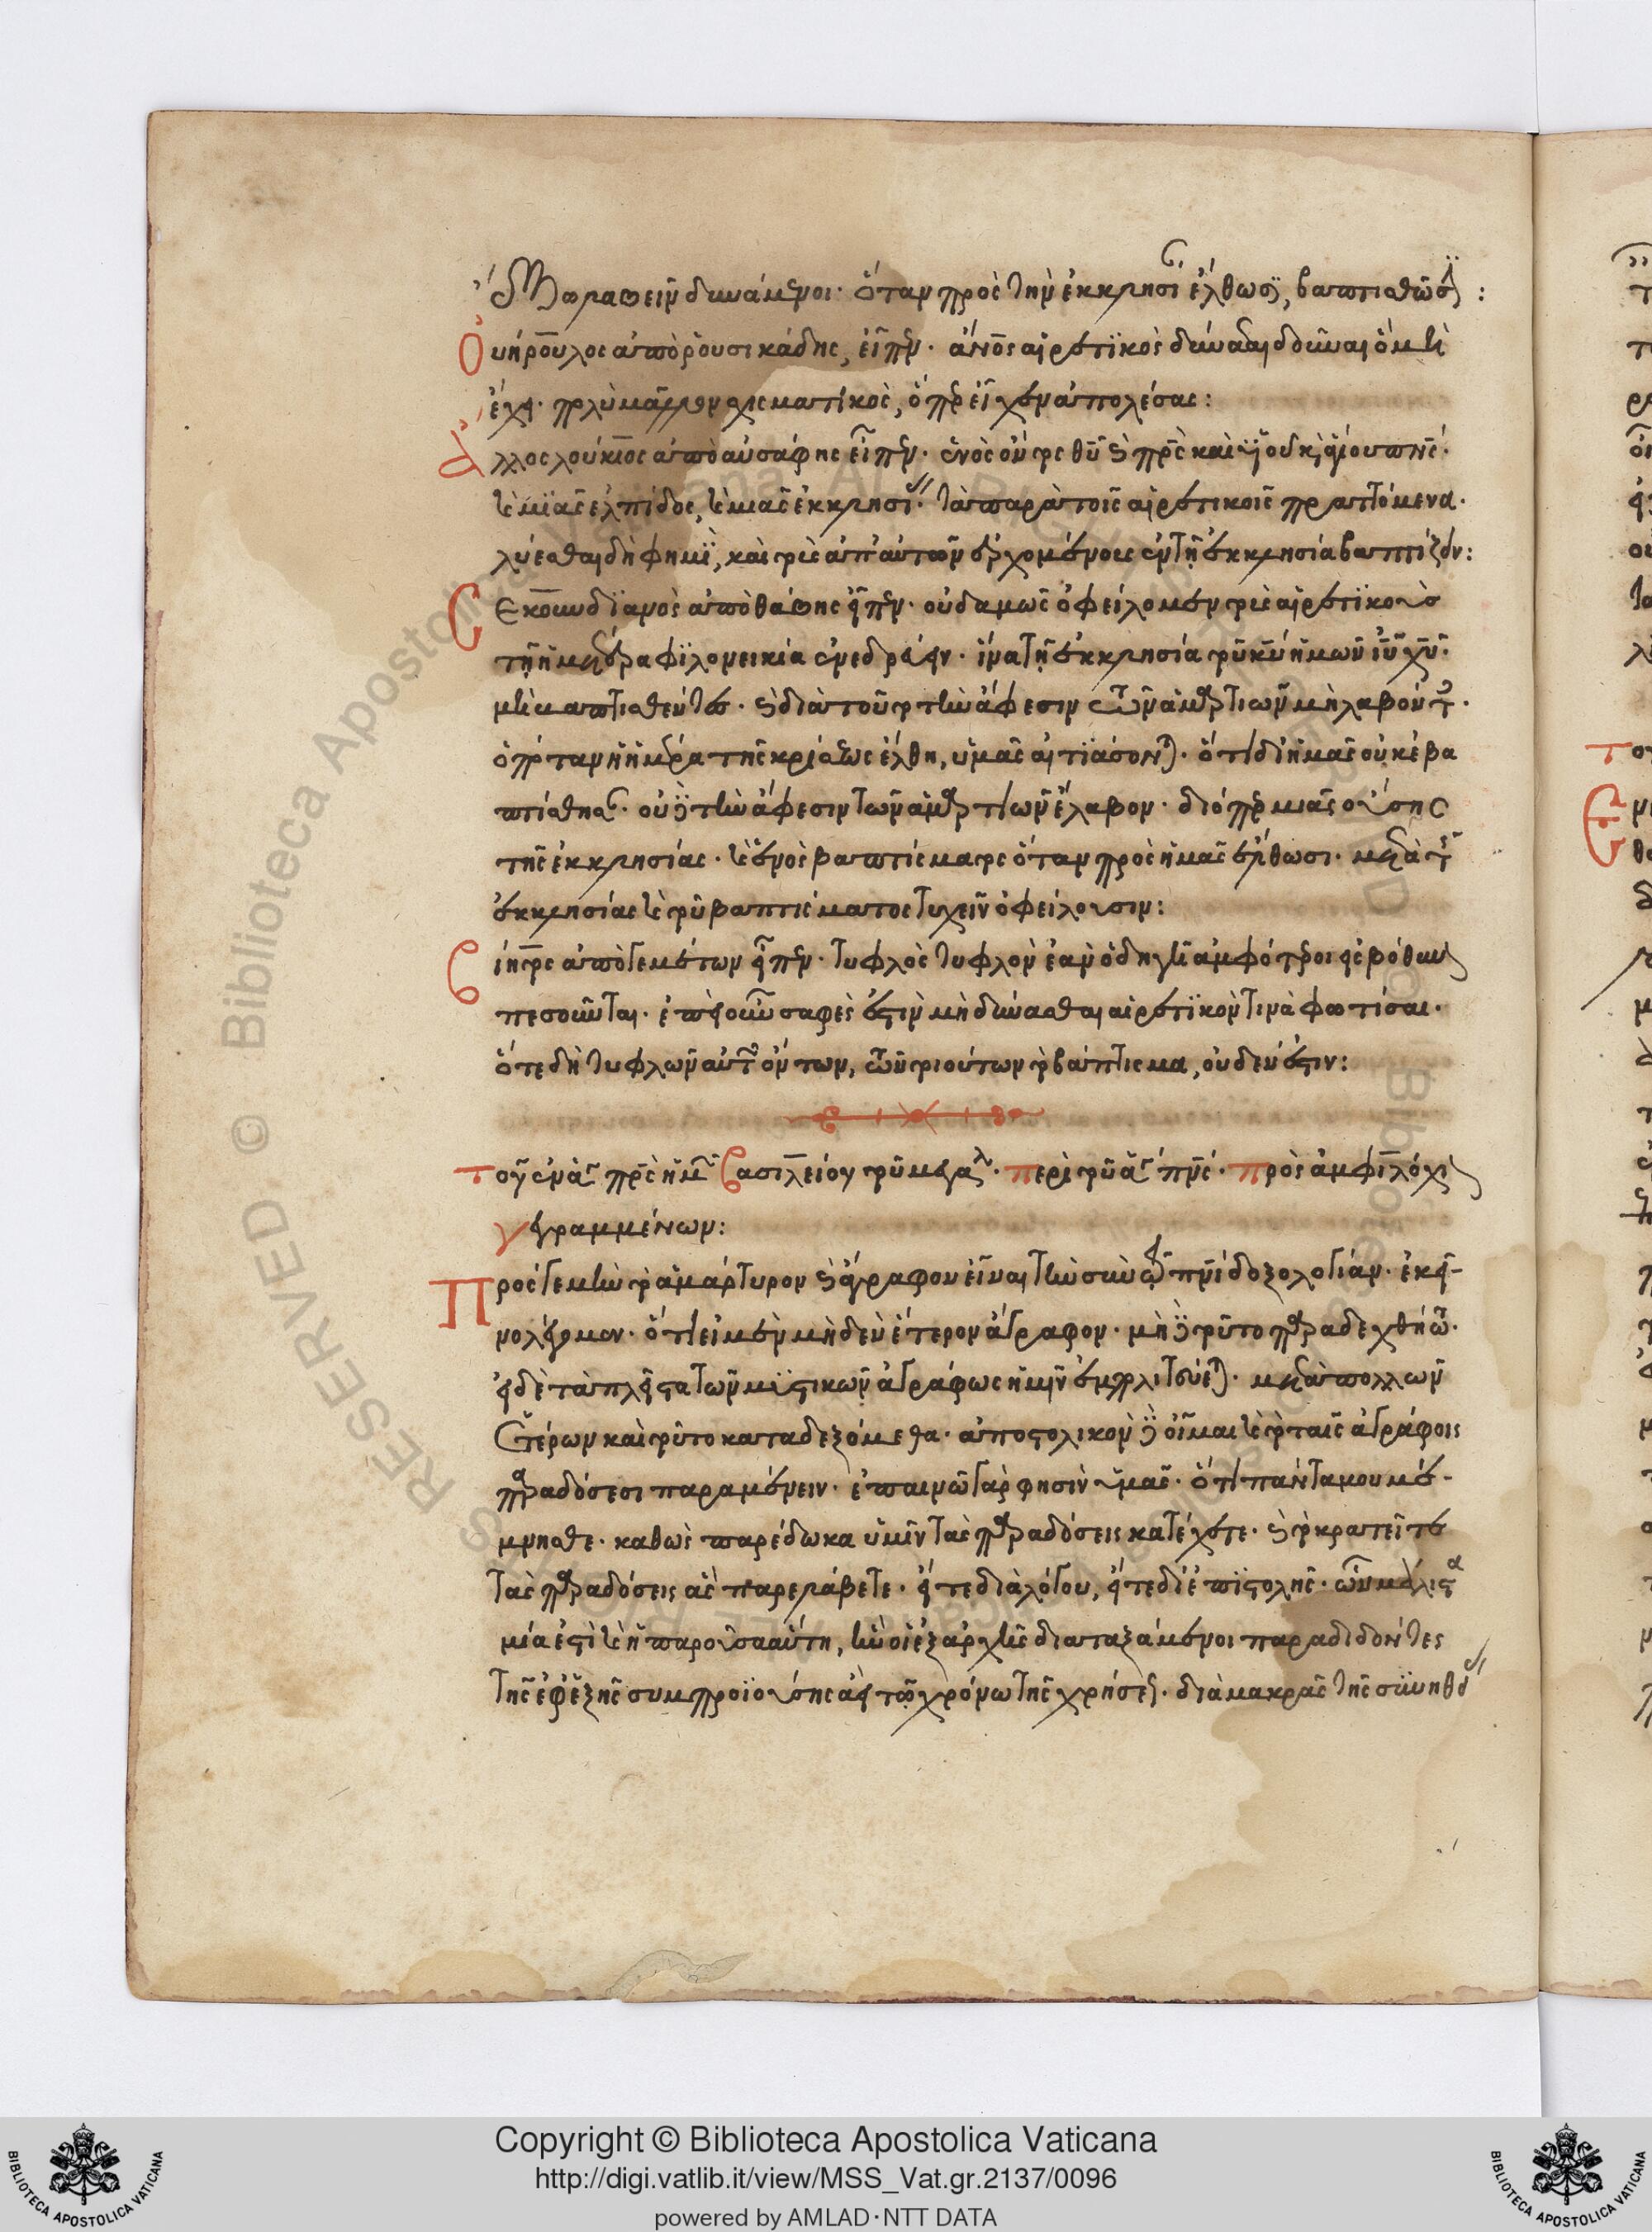 ὅταν πρὸς τὴν ἐκκλησί ἔλθωσϊ, βαπτισθῶσ :
Ουήρουλος ἀπὸ ῥουσικάδης, εἶπεν· ἄνος αἱρετϊκὸς δύναται δοῦναι ὃ μὴ
ἔχει· πολὺ μᾶλλον σχισματικὸς, ὅπερ εἶχεν ἀπολέσας:
ἄλλος λούκιος ἀπὸ αὐσάφης εἶπεν·
τῆς μϊᾶς ἐλπίδος, καὶ μιᾶς ἐκκλησί· τὰ παρὰ τοῖς αἱρετικοῖς πραττόμενα·
λύεσθαι δὴ φημϊ, καὶ τοὺς ἀπ' αὐτῶν ἐρχομένους ἐν τῇ ἐκκλησία βαπτίζειν:
Σεκουνδϊανὸς ἀπὸ θάβης εἶπεν· οὐδαμῶς ὀφείλομεν τοὺς αἱρετϊκοὺς
τῇ ἡμετέρα φϊλονεικία ἐνεδρεύειν· ἵνα τῇ ἐκκλησία τοῦ κυ ἡμῶν ιυ χυ·
μὴ βαπτισθέντες· καὶ διὰ τοῦτο τὴν ἄφεσιν τῶν ἁμαρτιῶν μὴ λαβόντες·
ὁπόταν ἡ ἡμέρα τῆς κρίσεως ἔλθη, ὑμᾶς αἰτιάσονται· ὅτι δι' ἡμᾶς οὐκ ἐβα
πτίσθησαν· οὐδὲ τὴν ἄφεσιν τῶν ἁμαρτιῶν ἔλαβον· διόπερ μιᾶς οὔσης
τῆς ἐκκλησίας· καὶ ἑνὸς βαπτίσματος ὅταν πρὸς ἡμᾶς ἔλθωσι· μετὰ τῆς
ἐκκλησίας καὶ τοῦ βαπτίσματος τυχεῖν ὀφείλουσιν:
εἶπεν· τυφλὸς τυφλὸν ἐὰν ὁδηγῇ ἀμφότεροι εἰς βόθυν
πεσοῦνται· ἐπεὶ οὖν σαφὲς ἐστὶν μὴ δύνασθαι αἱρετϊκόν τινὰ φωτίσαι·
ὅτε δὴ τυφλῶν αὐτῶν ὄντων, τῶν τοιούτων τὸ βάπτισμα, οὐδέν ἐστιν:
Τοῦ ἐν ἁγ πρς ἡμ βασιλείου τοῦ μεγαλ· περὶ τοῦ ἁγ πνς· πρὸς ἀμφιλόχι
γεγραμμένων:
Πρός γε μὴν τὸ ἀμάρτυρον καὶ ἄγραφον εἶναι τὴν σὺν τῷ πνι δοξολογίαν· ἐκεῖ-
νο λέγομεν· ὅτι εἰ μὲν μηδὲν ἕτερον ἄγραφον· μηδὲ τοῦτο παραδεχθήτω·
εἰ δὲ τὰ πλεῖστα τῶν μϋστικῶν ἀγράφως ἡμῖν ἐμπολιτεύεται· μετὰ πολλῶν
ἑτέρων καὶ τοῦτο καταδεξόμεθα· ἀποστολικὸν δὲ οἶμαι καὶ τὸ ταῖς ἀγράφοις
παραδόσεσι παραμένειν· ἐπαινῶ γάρ φησιν ὑμᾶς· ὅτι πάντα μου μέ-
μνησθε· καθὼς παρέδωκα ὑμῖν τὰς παραδόσεις κατέχετε· καὶ τὸ κρατεῖτε
τὰς παραδόσεις ἃς παρελάβετε· εἴτε διὰ λόγου, εἴτε δι' ἐπϊστολῆς· ὧν μάλιστα
μία ἐστὶ καὶ ἡ παροῦσα αὕτη, ἣν οἱ ἐξ ἀρχῆς διαταξάμενοι παραδιδόντες
τῆς ἐφεξῆς συμπροϊούσης ἀεὶ τῷ χρόνω τῆς χρήσεως· διὰ μακρᾶς τῆς συνηθεί
RESERVED © Biblioteca Apostolica
Copyright © Biblioteca Apostolica Vaticana
http://digi.vatlib.it/view/MSS_Vat.gr.2137/0096
powered by AMLAD·NTT DATA
BIBLIOTECA APOSTOLICA VATICANA
BIBLIOTECA APOSTOLICA VATICANA